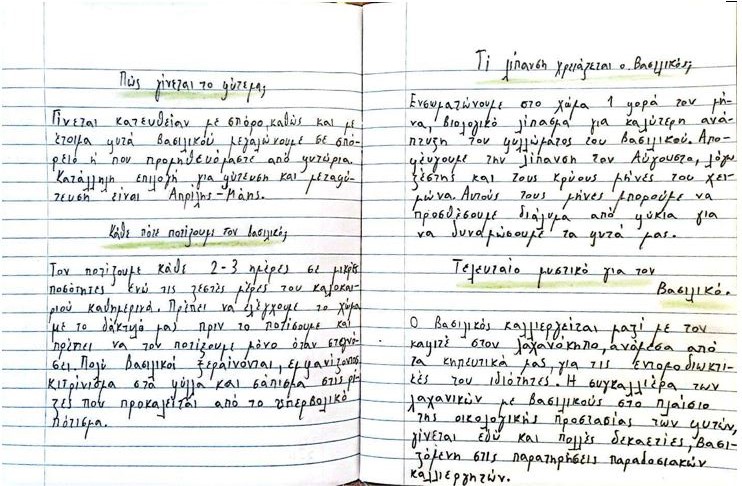 Πώς γίνεται το φύτεμα;
Γίνεται κατευθείαν με σπόρο, καθώς και με
έτοιμα φυτά βασιλικού μεγαλώνουμε σε σπό-
ρειο ή που προμηθευόμαστε από φυτώρια.
Κατάλληλη επιλογή για φύτευση και μεταφύ-
τευση είναι Απρίλης-Μάης.
Κάθε πότε ποτίζουμε τον βασιλικό;
Τον ποτίζουμε κάθε 2-3 ημέρες σε μικρές
ποσότητες ενώ τις ζεστές μέρες του καλοκαι-
ριού καθημερινά. Πρέπει να ελέγχουμε το χώμα
με το δάκτυλό μας πριν το ποτίσουμε και
πρέπει να τον ποτίζουμε μόνο όταν στεγνώ-
σει. Πολύ βασιλικοί ξεραίνονται, εμφανίζοντας
κιτρίνισμα στα φύλλα και σάπισμα στις ρί-
ζες που προκαλείται από το υπερβολικό
πότισμα.
Τι λίπανση χρειάζεται ο Βασιλικός;
Ενσωματώνουμε στο χώμα 1 φορά τον μή-
να, βιολογικό λίπασμα για καλύτερη ανά-
πτυξη του φυλλώματος του βασιλικού. Απο-
φεύγουμε την λίπανση τον Αύγουστο, λόγω
ζέστης και τους κρύους μήνες του χει-
μώνα. Αυτούς τους μήνες μπορούμε να
προσθέσουμε διάλυμα από φύκια για
να δυναμώσουμε τα φυτά μας.
Τελευταίο μυστικό για τον
Βασιλικό.
Ο Βασιλικός καλλιεργείται μαζί με τον
κατιφέ στον λαχανόκηπο, ανάμεσα από
τα κηπευτικά μας, για τις εντομοδιωκτι-
κές του ιδιότητες. Η συγκαλλιέρα των
λαχανικών με βασιλικούς στο πλαίσιο
της οικολογικής προστασίας των φυτών,
γίνεται εδώ και πολλές δεκαετίες, βασι-
ζόμενη στις παρατηρήσεις παραδοσιακών
καλλιεργητών.